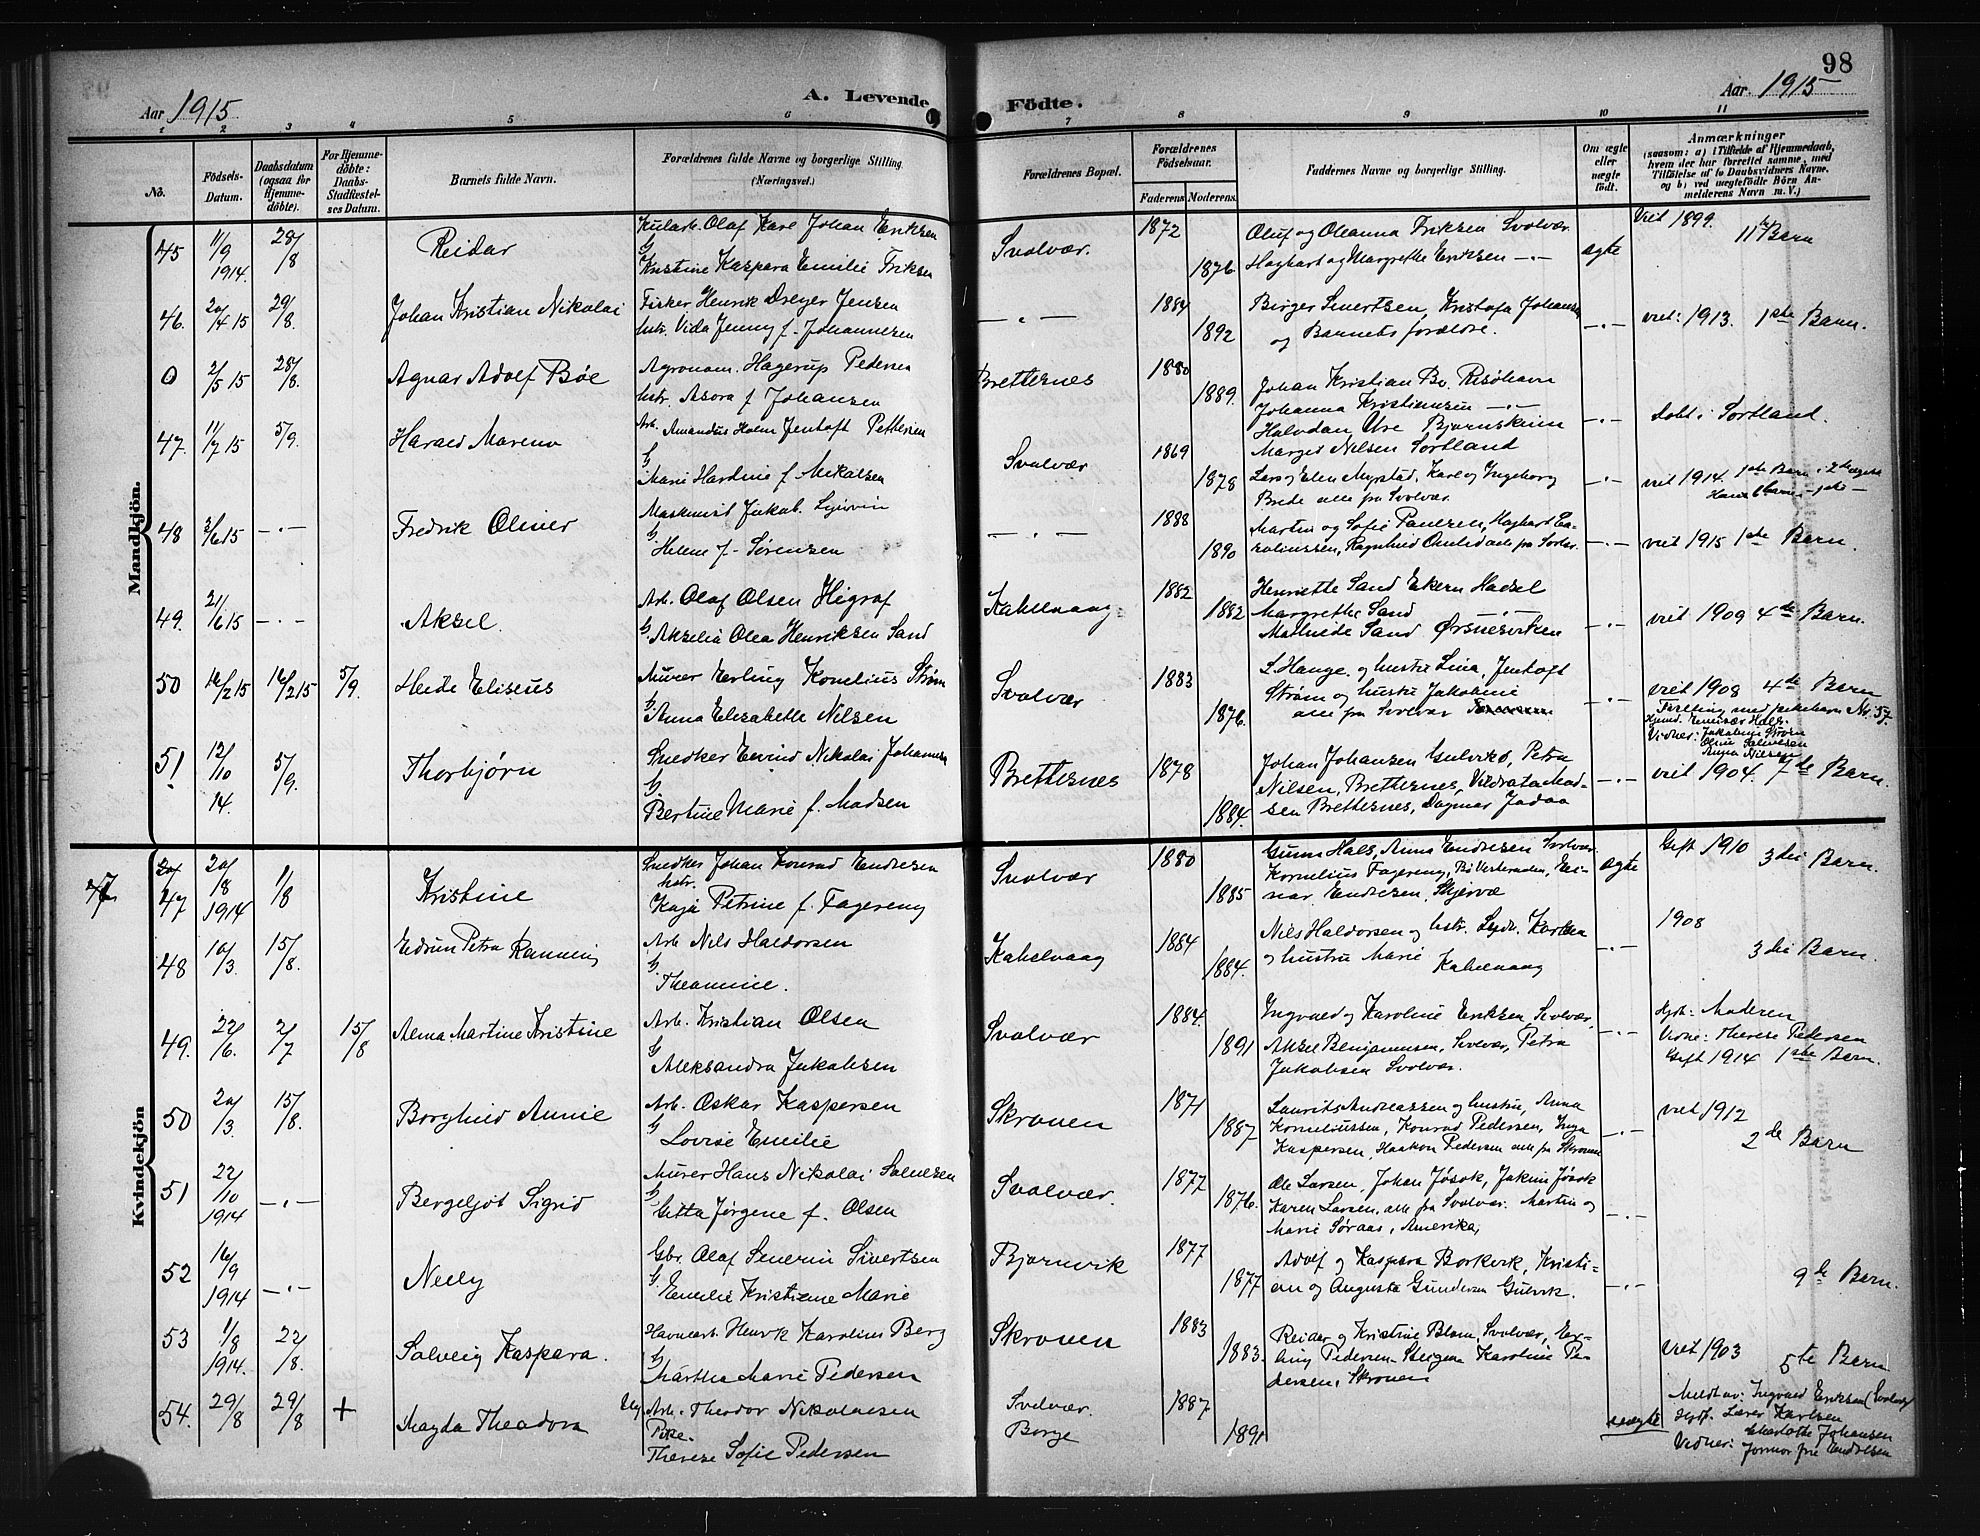 98
Aar 1915
A. Levende Födte.
Aar 1915
1 2 3 4 5 6 7 8 9 10 11
No.
Födsels-Datum.
Daabsdatum (ogsaa for Hjemme-döbte).
For Hjemme-döbte: Daabs-Stadfæstel-ses Datum.
Barnets fulde Navn.
Forældrenes fulde Navne og borgerlige Stilling.
(Næringsvei.)
Forældrenes Bopæl.
Forældrenes Födselsaar.
Faderens Moderens.
Faddernes Navne og borgerlige Stilling.
Om ægte eller uægte födt.
Anmærkninger
(saasom: a) i Tilfælde af Hjemmedaab,
hvem der har forrettet samme, med
Tilföielse af to Daabsvidners Navne,
og b) ved uægtefödte Börn An-
melderens Navn m. V.)
Mandkjön.
45 11/9 1914. 28/8 Reidar
Olaf Karl Johan Eriksen
G
Kristine Kaspara Emilie Eriksen
Svolvær. 1872 1876
Oluf og Oleanna Eriksen Svolvær
Haghart og Margrethe Eriksen -"-
ægte
viet 1899. 11te Barn
46. 20/4 15 29/8. Johan Kristian Nikolai
Fisker Henrik Dreyer Jensen
hstr. Vida Jenny f. Johannesen
— " — 1884 1892
Birger Sivertsen, Kristofa Johansen
og Barnets forældre.
-"-
viet: 1913. 1ste Barn.
0 2/5 15 28/8. Agnar Adolf Böe
Agronom. Hagerup Pedersen
hstr. Asora f Johansen
Brettesnes 1880 1889.
Johan Kristian Bö. Risöhavn
Johanna Kristiansen -"-
Halvdan Bjornskinn
Margit Nilsen Sortland
-"-
Döbt i Sortland.
47. 11/7 15 5/9. Harald Mareno
Arb. Amandus Holm Jentoft Pettersen
G
Marie Hardine f. Mikalsen
Svolvær 1869 1878
Lars og Elen Myrstad, Karl og Ingeborg
Brede alle fra Svolvær.
-"-
viet 1914. 1ste Barn i 2det ægtesk
48 3/6 15 -"- Fredrik Oliver
Maskinist Jakob
G.
Helene f. Sørensen
— " — 1888 1890
Martin og Sofie Paulsen, Haghart
-"-
viet 1915 1ste Barn.
49. 21/6 15 -"- Aksel.
Arb. Olaf Olsen Higraf
G. Akselia Olea Henriksen Sand
Kabelvaag 1882 1882
Henriette Sand Ekern Hadsel
Margrethe Sand -"-
Mathilde Sand Ørsnesvirken
-"-
viet 1909 4de Barn.
50 16/2 15 16/2 15 5/9. Heide Eliseus
Murer Erling Kornelius Strøm
G.
Anna Elisabeth Nilsen
Svolvær 1883 1876.
S. Hauge og hustru Lina, Jentoft
Strøm og hustru Jakobine
alle fra Svolvær
-"-
viet 1908 4de Barn
Tvilling med pikebarn Nr. 57.
Vidner: Jakobine Strøm
Anna Nilsen
51. 12/10 14. 5/9. Thorbjørn
Snedker Eivind Nikolai Johannesen
G.
Bertine Marie f. Madsen
Brettesnes 1878 1884.
Johan Johansen Gulvikø, Petra
Nilsen, Brettesnes, Valdrata Mad-
sen Brettesnes, Dagmar
-"-
viet 1904. 7de Barn.
Kvindekjön
47 47 20/8 1914 1/8 Kristine
Snedker Johan Konrad Endresen
hstr.
Kaja Petrine f. Fagereng
Svolvær 1880 1885
Gunn Hals, Anna Endresen Svolvær
Kornelius Fagereng, Bö Vesteraalen, Ei-
nar Endresen, Skjervø
ægte
Gift 1910 3die Barn.
48 10/3. 15/8. Edrun Petra
Arb Nils Haldorsen
G.
Theamine.
Kabelvaag 1884 1884.
Nils Haldorsen og hstr.
og hustru Marie Kabelvaag
-"-
1908
3die Barn.
49. 22/6. 2/7 15/8 Alma Martine Kristine
Arb. Kristian Olsen
G
Aleksandra Jakobsen
Svolvær 1884. 1891
Ingvald og Karoline Eriksen Svolvær,
Aksel Benjaminsen, Svolvær, Petra
Jakobsen Svolvær.
-"-
Hjd: Moderen
Vidne: Therese Pedersen
Gift 1914 1ste Barn.
50 20/3. 15/8. Borghild Annie
Arb. Oskar Kaspersen
G
Lovise Emilie
Skroven 1871 1887
Laurits Andreassen og hustru, Anna
Korneliussen, Konrad Pedersen, Inga
Kaspersen, Haakon Pedersen alle fra Skroven
-"-
viet 1912
2de Barn
51 22/10 1914 -"- Bergeljot Sigrid
Murer Hans Nikolai Salvesen
G
Gitta Jørgene f. Olsen
Svolvær. 1877 1876.
Ole Larsen, Johan Jøsok, Jakim Jøsok
Karen Larsen, alle fra Svolvær. Martin og
Marie Søraas, Amerika,
-"-
52 16/9 1914 -"- Nelly
Gbr. Olaf Severin Sivertsen
G.
Emelie Kristianne Marie
Bjornvik 1877 1877
Adolf og Kaspara Borkvik, Kristi-
an og Augusta Gundersen Gulvik.
-"-
9de Barn.
53 1/8 1914. 22/8. Solveig Kaspara.
Havnearb. Henrik Karolius Berg
G
Martha Marie Pedersen
Skroven 1883 1883.
Reidar og Kristine Blom, Svolvær, Er-
ling Pedersen Steigen Karoline Pe-
dersen, Skroven
viet 1903
5te Barn
54. 29/8 29/8 + Magda Theodora
Ug Arb. Theodor Nikolaisen
Pike.
Therese Sofie Pedersen
Svolvær.
Borge
1887 1891
uægte
Meldt av: Ingvald Eriksen (Svolvær)
Hjd. Lærer Karlsen
Vidner: Charlotte Johansen
Jormor fru Endresen